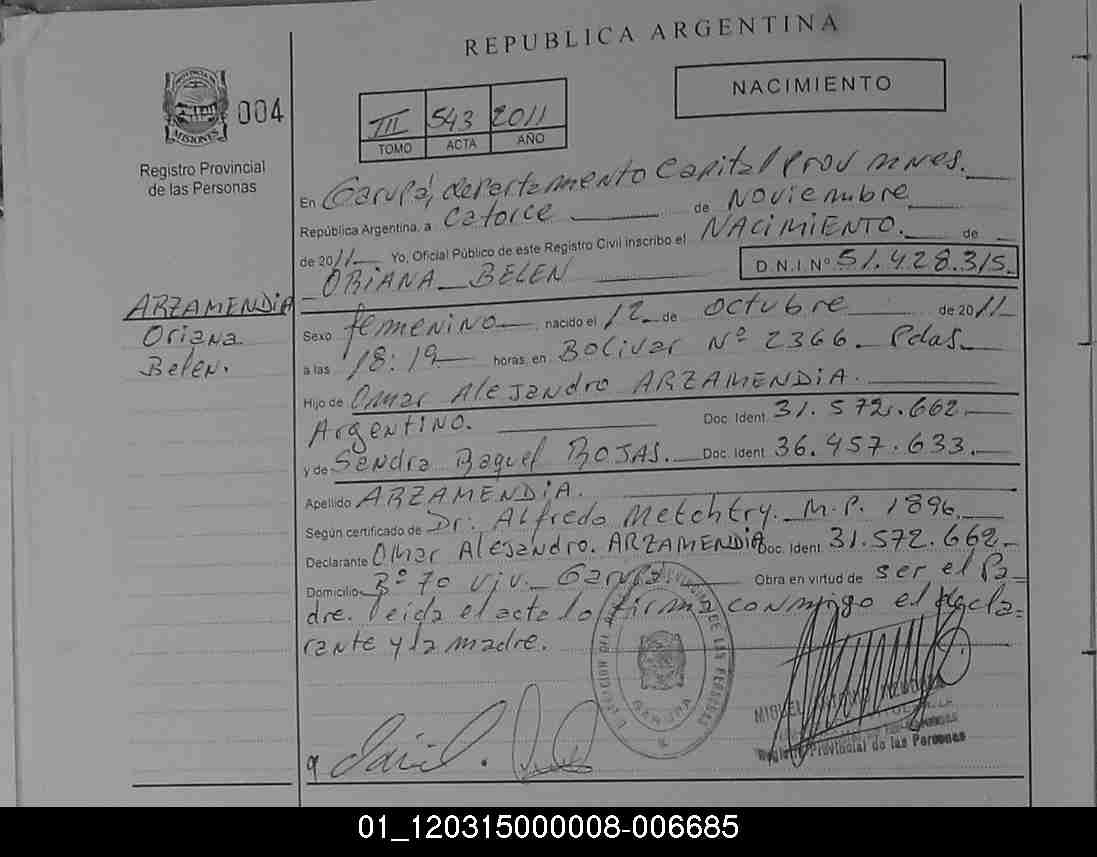 REPUBLICA ARGENTINA
NACIMIENTO
PROVINCIA DE
MISIONES
004
III 543 2011
TOMO ACTA AÑO
Registro Provincial
de las Personas
En Garupá, departamento Capital Prov Mnes.
República Argentina, a Catorce de Noviembre
de 2011 Yo, Oficial Público de este Registro Civil inscribo el NACIMIENTO. de
ORIANA BELEN D.N.I Nº 51.428.315.
ARZAMENDIA
Oriana
Belen.
Sexo femenino nacido el 12 de octubre de 2011
a las 18:19 horas, en Bolivar Nº 2366. Pdas.
Hijo de Omar Alejandro ARZAMENDIA.
Argentino. Doc. Ident. 31.572.662.
y de Sandra Raquel ROJAS. Doc. Ident. 36.457.633.
Apellido ARZAMENDIA.
Según certificado de Dr. Alfredo Metchtry. M.P. 1896.
Declarante Omar Alejandro. ARZAMENDIA Doc. Ident. 31.572.662.
Domicilio Bº 70 viv. Garupá Obra en virtud de ser el Pa-
dre. Leida el acta lo firma conmigo el decla-
rante y la madre.
DE LAS PERSONAS
GARUPA
MIGUEL
Registro Provincial de las Personas
01_120315000008-006685